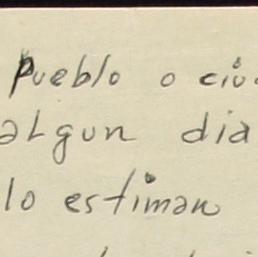 Pueblo o ciu
algun dia
lo estiman